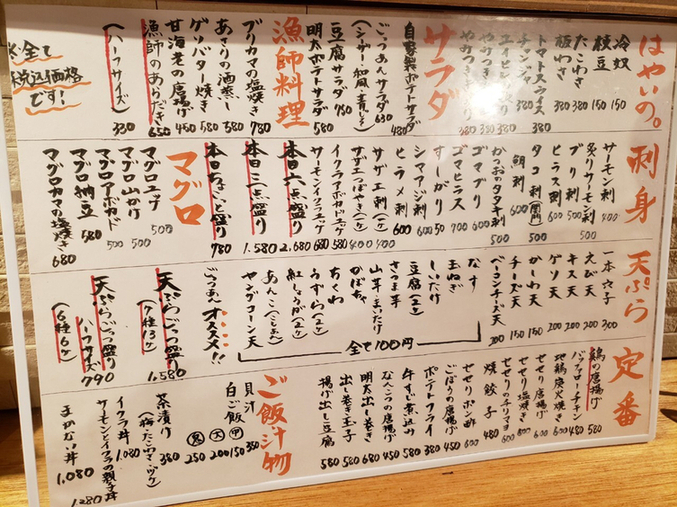 はやいの。
冷奴 150
枝豆 150
たこわさ
板わさ 380
トマトスライス 380
チャンジャ 380
エイヒレ
やみつき
サラダ
自家製ポテトサラダ 480
ごっつぁんサラダ 630
(シーザー・和風・青じそ)
豆腐サラダ 780
明太ポテトサラダ 580
漁師料理
ブリカマの塩焼き 780
あさりの酒蒸し 580
ゲソバター焼き 580
甘海老の唐揚げ 450
漁師のあらだき 650
(ハーフサイズ) 330
※全て
税込価格
です!
刺身
サーモン刺 400
炙りサーモン刺 500
ブリ刺 500
ヒラス刺 600
タコ刺
鯛刺 600
かつおのタタキ刺 500
ゴマブリ 600
ゴマヒラス 700
すしがり 50
シマアジ刺 600
ヒラメ刺 600
サザエ刺(一ケ) 400
サザエつぼやき(一ケ) 400
イクラアボカドユッケ 680
サーモンイクラユッケ 680
本日六点盛り 2,680
本日三点盛り 1,580
本日ちょいと盛り 780
マグロ
マグロユッケ 500
マグロ山かけ 500
マグロアボカド 500
マグロ納豆 580
マグロカマの塩焼き 680
天ぷら
一本穴子 300
えび天 200
キス天 200
ゲソ天 200
かしわ天 150
チーズ天 150
ベーコンチーズ天 200
なす
玉ねぎ
しいたけ
豆腐(一ケ)
さつま芋
山芋・まいたけ
かぼちゃ
ちくわ
うずら(二ケ)
紅しょうが(二ケ)
あんこ(こしあん)
ヤングコーン天
全て100円
ごっつぁんオススメ!!
天ぷらごっつ盛り
(7種13ケ) 1,580
天ぷらごっつ盛り
ハーフサイズ 790
(6種6ケ)
定番
鶏の唐揚げ 580
バッファローチキン 480
地鶏炭火焼き 600
せせり唐揚げ
せせり塩焼き 600
せせりのチリマヨ
焼餃子 480
せせりポン酢
ごぼうの唐揚げ 450
ポテトフライ 380
牛すじ煮込み 580
なんこつの唐揚げ 450
明太出し巻き 680
出し巻き玉子 580
揚げ出し豆腐 580
ご飯汁物
貝汁 350
白ご飯 (中) 150 (大) 200 (鬼) 250
茶漬け 380
(梅・たこわさ・ツケ)
イクラ丼 1,080
サーモンとイクラの親子丼 1,280
まかない丼 1,080